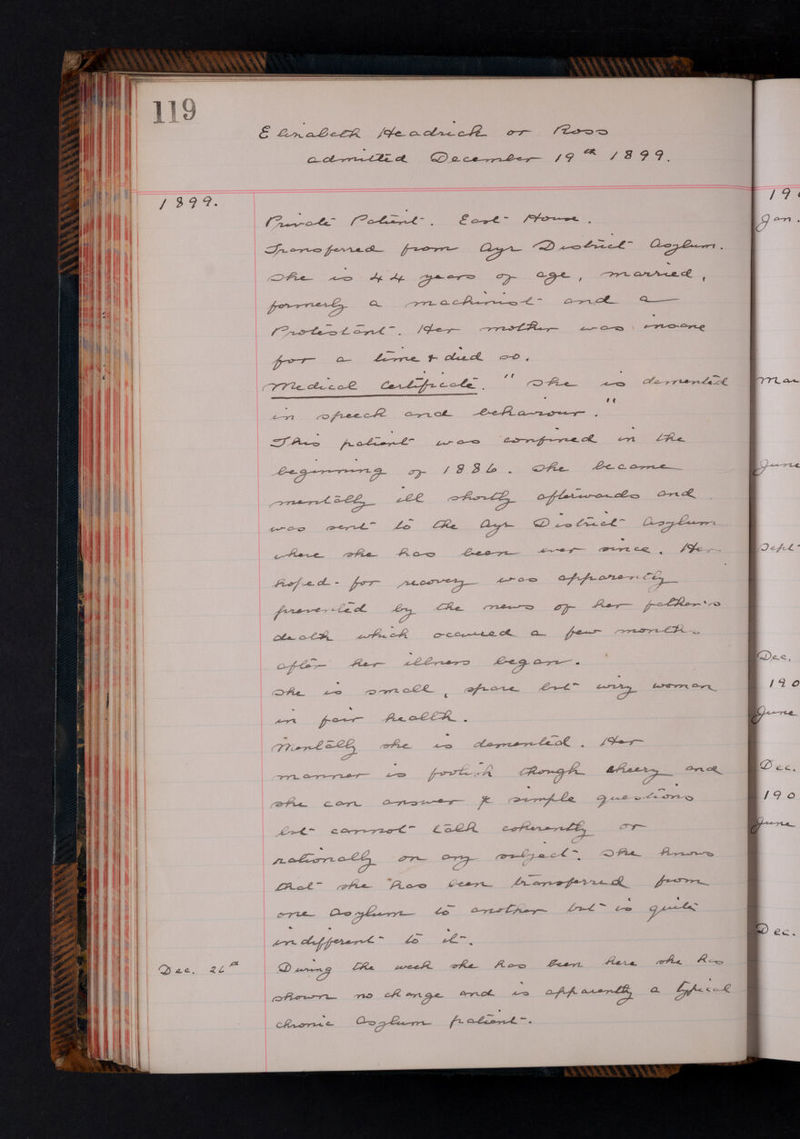 119
Elizabeth Headrick or Ross
admitted December 19th 1899.
1899.
Private Patient. East House.
Transferred from Ayr District Asylum.
She is 44 years of age, married,
formerly a machinist and a
Protestant. Her mother was insane
for a time & died so.
Medical Certificate. "She is demented
in speech and behaviour."
This patient was confined in the
beginning of 1886. She became
mentally ill shortly afterwards and
was sent to the Ayr District Asylum
where she has been ever since. Her
hoped-for recovery was apparently
prevented by the news of her father's
death which occurred a few months
after her illness began.
She is small, spare but wiry woman
in fair health.
Mentally she is demented. Her
manner is foolish though cheery and
she can answer simple questions
but cannot talk coherently or
rationally on any subject. She knows
that she has been transferred from
one Asylum to another but is quite
indifferent to it.
Dec. 26th During the week she has been here she has
shown no change and is apparently a typical
chronic Asylum patient.
19
Jan.
Mar
June
Sept
Dec.
190
June
Dec.
190
June
Dec.